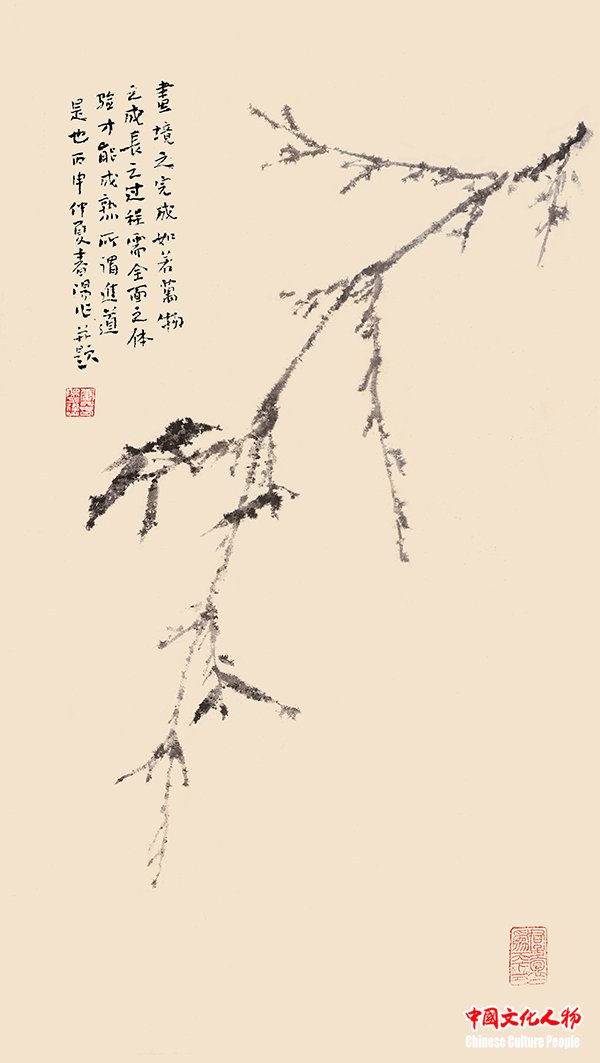 畫境之完成如若萬物
之成長之過程需全面之体
驗才能成熟所谓進道
是也丙申仲夏春陽作并题
中國文化人物
Chinese Culture People